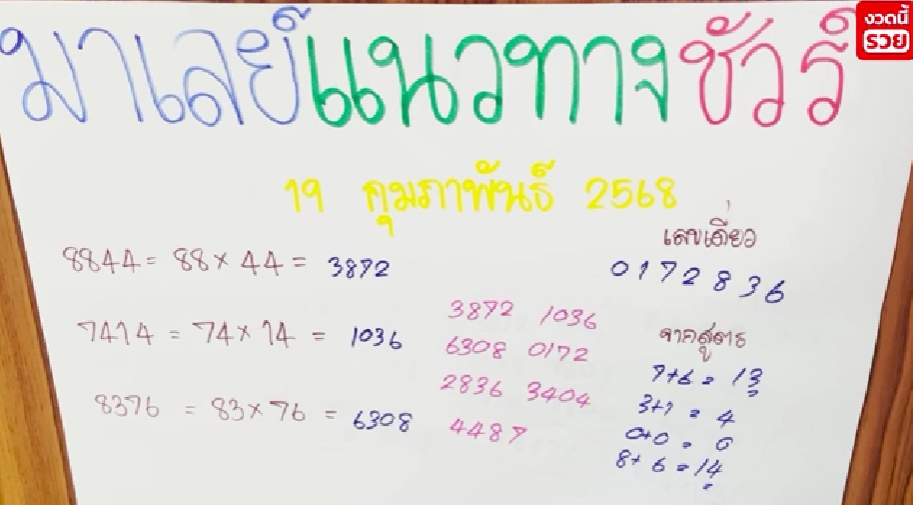 งวดนี้
รวย
มาเลย์แนวทางชัวร์
19 กุมภาพันธ์ 2568
8844 = 88 x 44 = 3872
7414 = 74 x 14 = 1036
8376 = 83 x 76 = 6308
3872 1036
6308 0172
2836 3404
4487
เลขเดี่ยว
0172836
จากสูตร
7+6 = 13
3+1 = 4
0+0 = 0
8+6 = 14